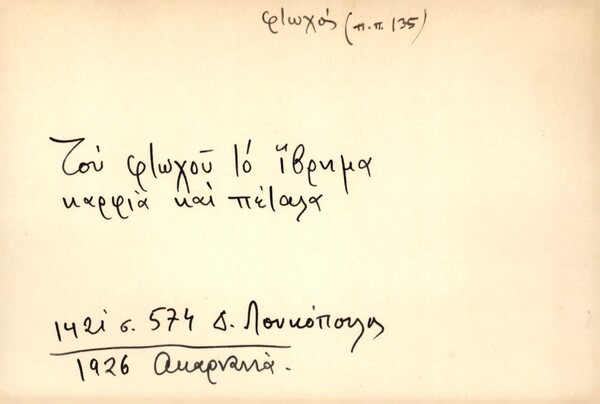 φτωχός (π.π. 135)
Τού φτωχοῦ τό ἵβρημα
καρφιὰ καὶ πέταλα
1421 σ. 574 Δ. Λουκόπουλος
1926 Ακαρνανιά.